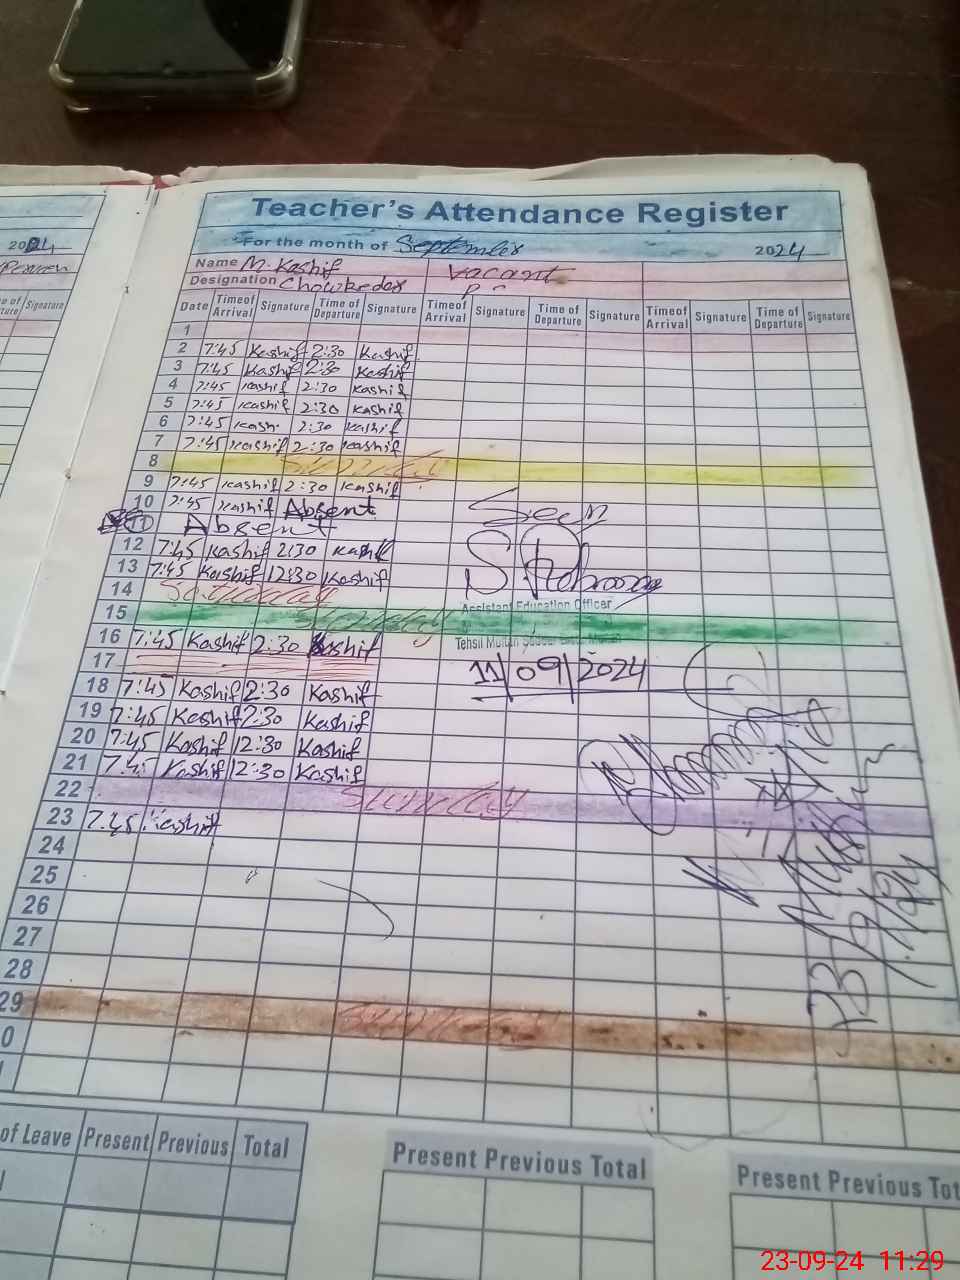 Teacher's Attendance Register
For the month of September 2024
2024
Name M. Kashif Vacant
Designation Chowkeder
Signature
Date Time of Arrival Signature Time of Departure Signature Time of Arrival Signature Time of Departure Signature Time of Arrival Signature Time of Departure Signature
1
2 7:45 Kashif 2:30 Kashif
3 7:45 Kashif 2:30 Kashif
4 7:45 Kashif 2:30 Kashif
5 7:45 Kashif 2:30 Kashif
6 7:45 Kash. 2:30 Kashif
7 7:45 Kashif 2:30 Kashif
8 Sunday
9 7:45 Kashif 2:30 Kashif
10 7:45 Kashif Absent
11 Absent
Seen
12 7:45 Kashif 2:30 Kashif
13 7:45 Kashif 12:30 Kashif
14 Saturday
Assistant Education Officer
15 Sunday
16 7:45 Kashif 2:30 Kashif
Tehsil Multan
17
11/09/2024
18 7:45 Kashif 2:30 Kashif
19 7:45 Kashif 2:30 Kashif
20 7:45 Kashif 12:30 Kashif
21 7:45 Kashif 12:30 Kashif
22 Sunday
23 7:45 Kashif
24
25
26
27
28
29 Sunday
0
23/9/24
of Leave Present Previous Total
Present Previous Total
Present Previous Tot
23-09-24 11:29